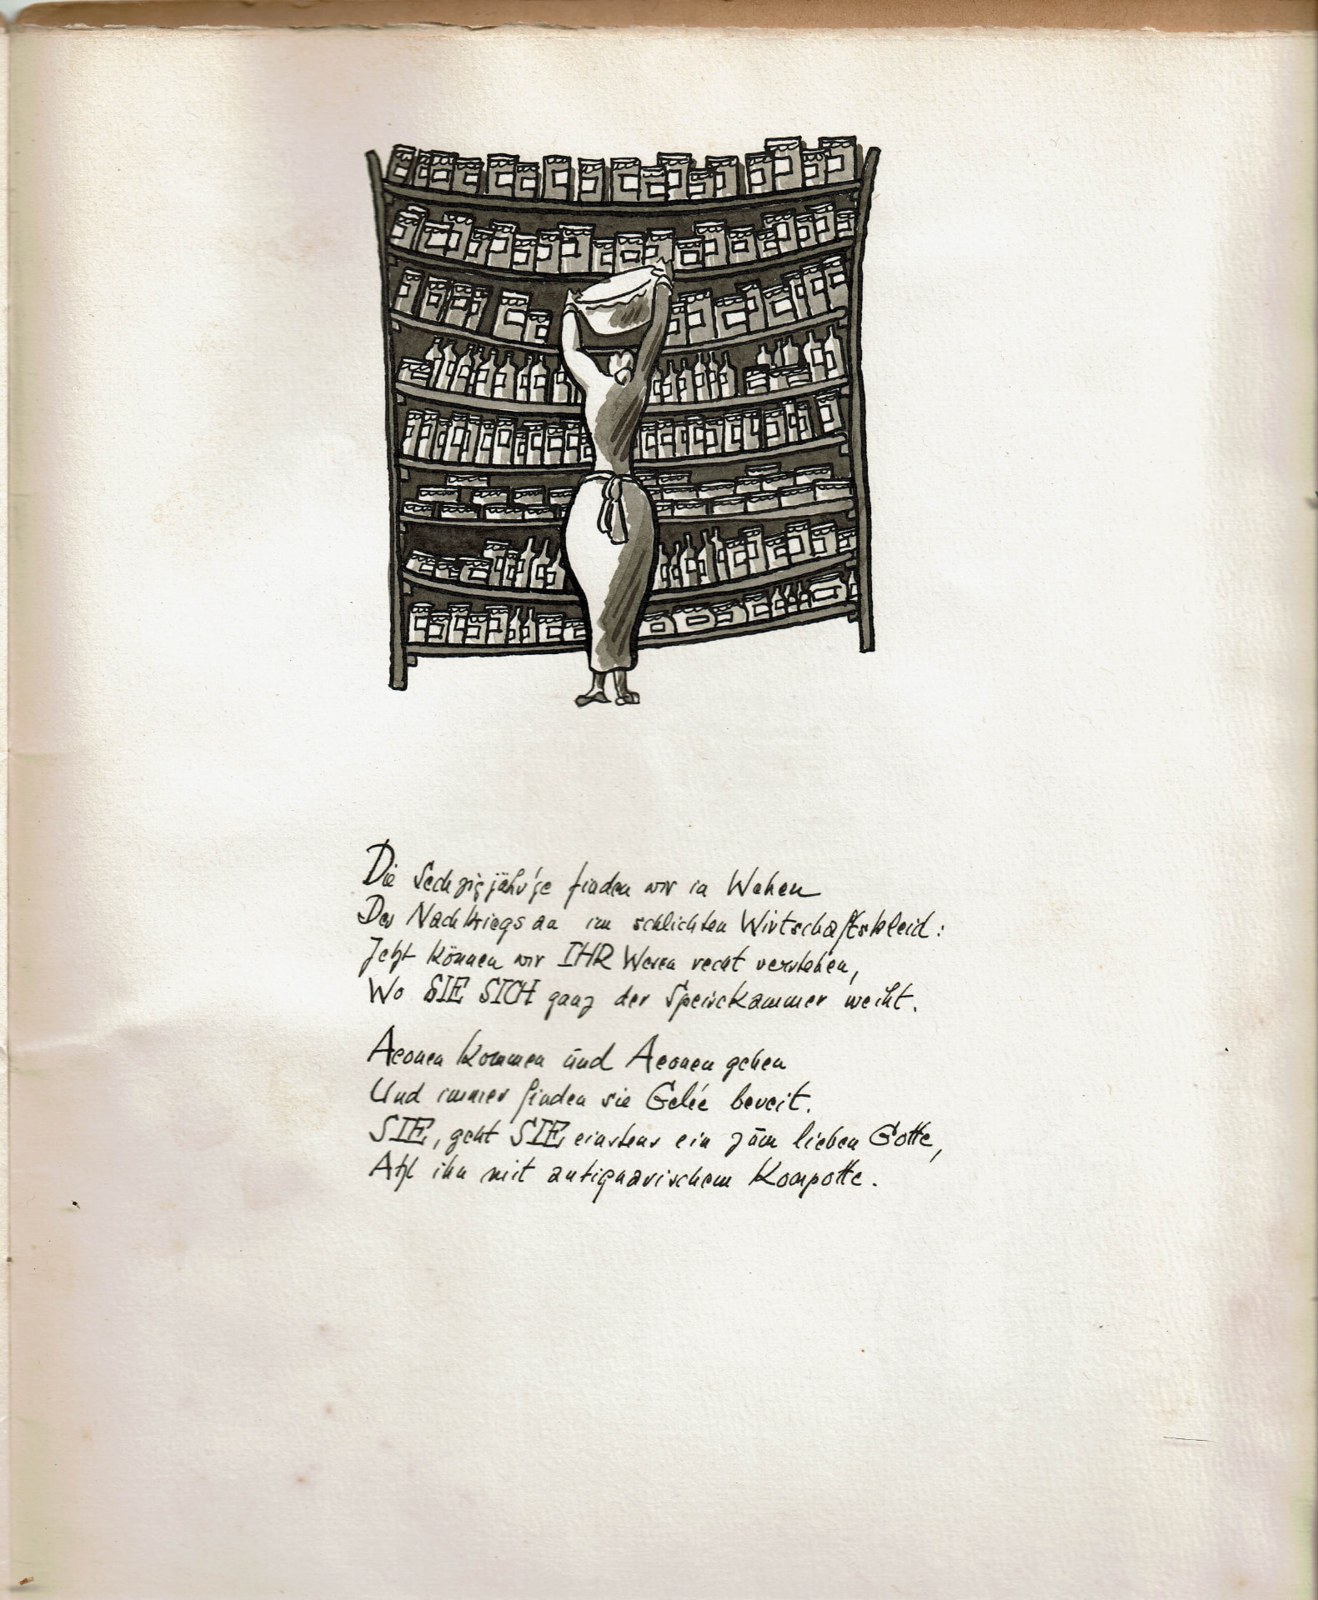 Die Sechzigjähr'ge finden wir in Wehen
Des Nachkriegs an im schlichten Wirtschaftskleid:
Jetzt können wir IHR Wesen recht verstehen,
Wo SIE SICH ganz der Speisekammer weiht.
Aeonen kommen und Aeonen gehen
Und immer finden sie Gelée bereit.
SIE, geht SIE einstens ein zum lieben Gotte,
Atzt ihn mit antiquarischem Kompotte.